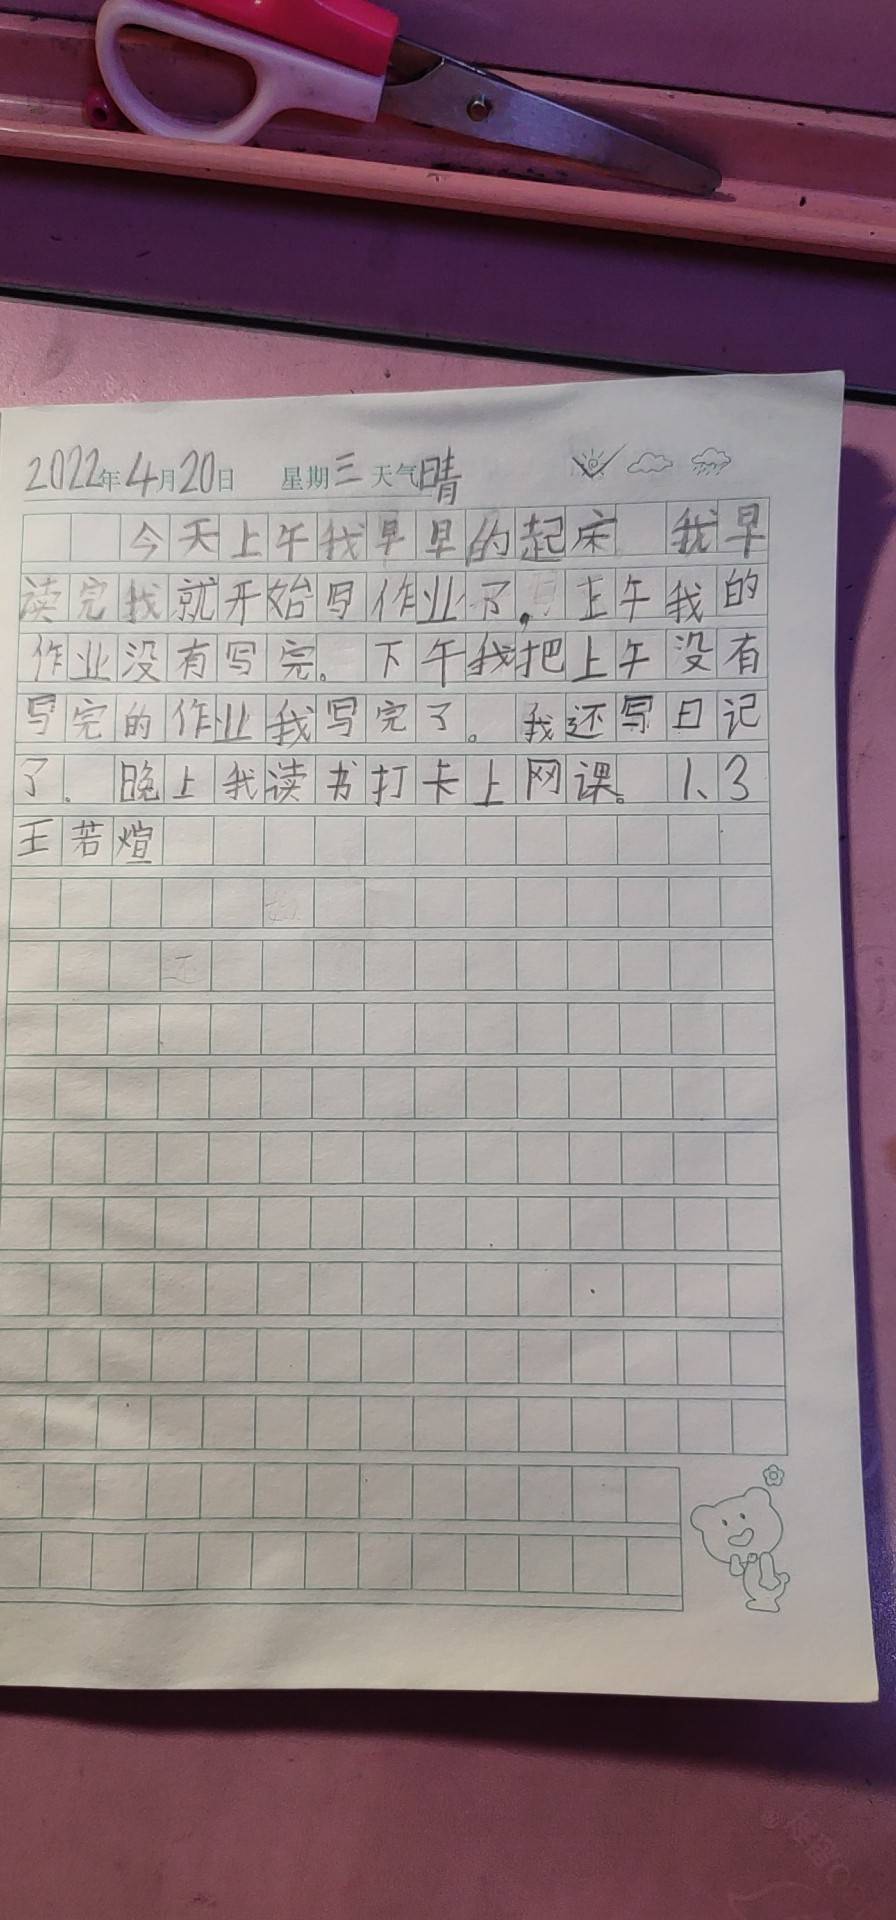 2022年4月20日 星期三 天气晴
今天上午我早早的起床 我早
读完我就开始写作业了，上午我的
作业没有写完。下午我把上午没有
写完的作业我写完了。我还写日记
了。晚上我读书打卡上网课。1、3
王若煊